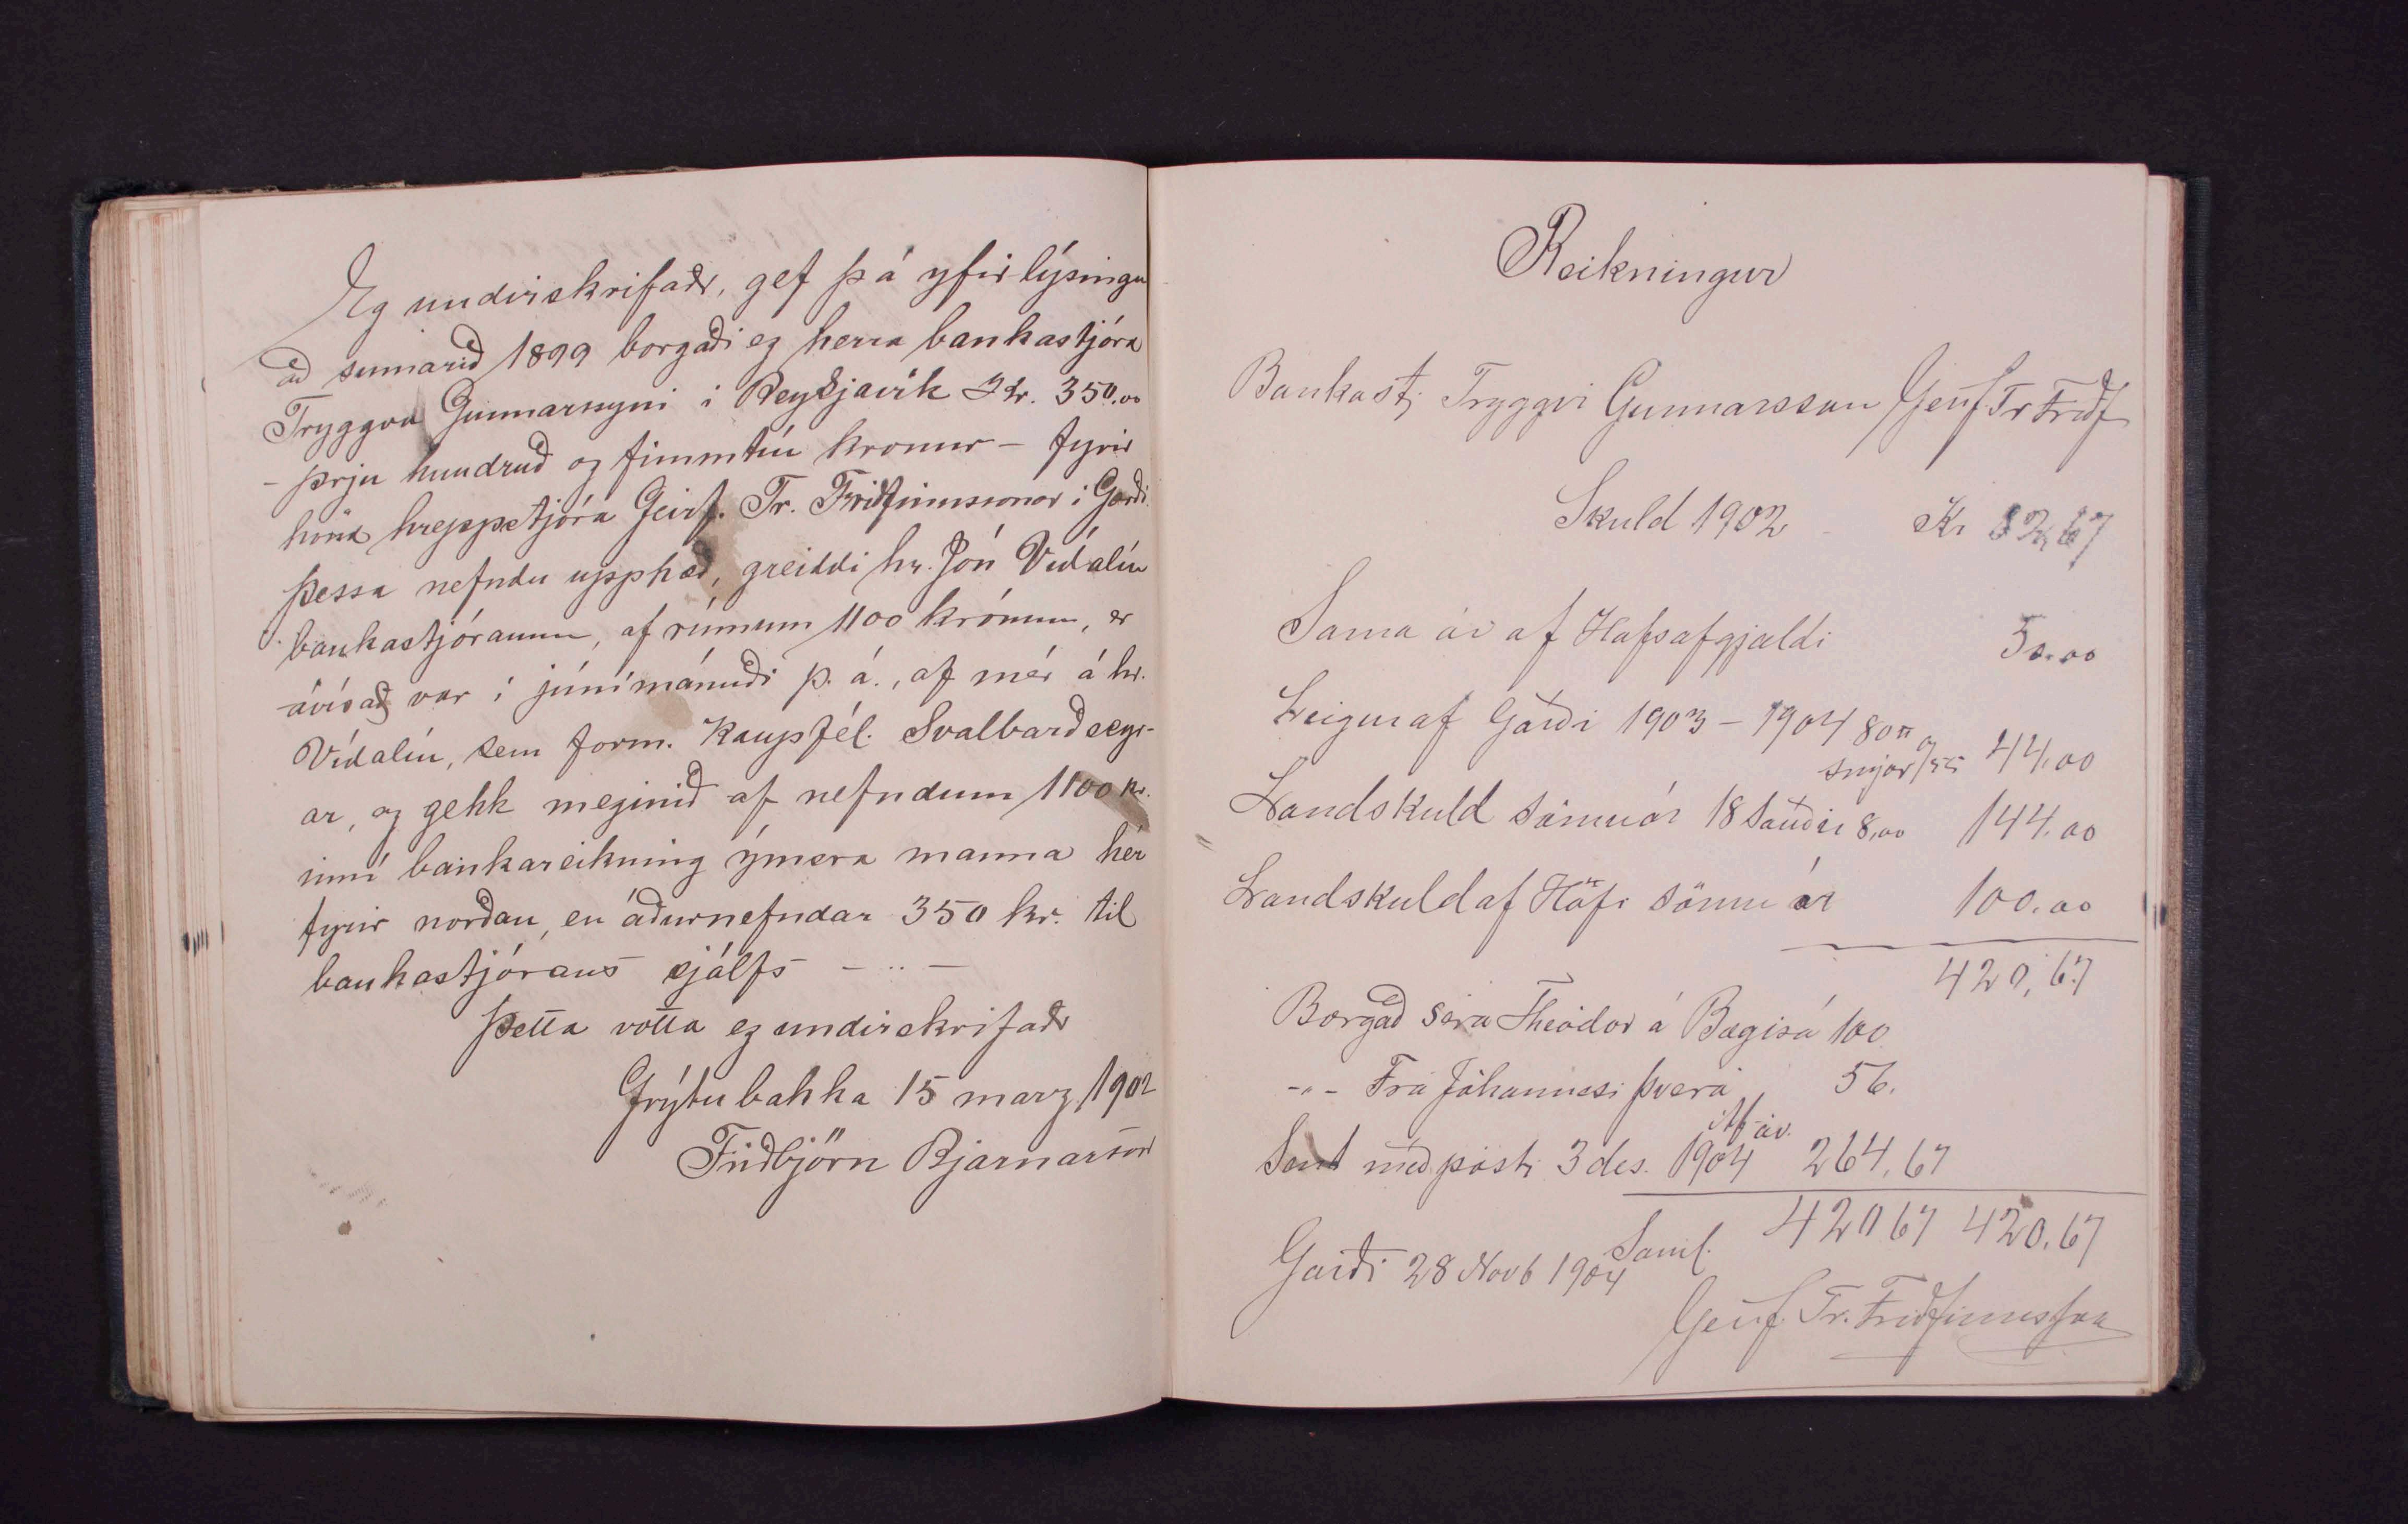 Eg undirskrifaðr, gef þá yfirlýsingu
að sumarið 1899 borgaði eg herra bankastjóra
Tryggva Gunnarssyni i Reykjavík Kr. 350.00
- þrju hundruð og fimmtíu kronur - fyrir
hönd hreppstjóra Geirf. Tr. Friðfinnssonar i Garði.
Þessa nefndu upphæð, greiddi hr. Jón Vídalín
bankastjóranum, af rúmum 1100 krónum, er
ávísað var í júnímánuði þ. á., af mér á hr.
Vídalín, sem form. Kaupfél. Svalbarðseyr-
ar, og gekk meginið af nefndum 1100 kr.
inní bankareikning ýmsra manna hér
fyrir norðan, en áðurnefndar 350 kr. til
bankastjórans sjálfs - .. -
Þetta votta eg undirskrifaðr
Grýtubakka 15 marz 1902
Friðbjörn Bjarnarson
Reikningur
Bankastj. Tryggvi Gunnarsson / Geirf. Tr Friðf
Skuld 1902 - Kr 82,67
Sama ár af Hafsafgjaldi 50.00
Leigur af Garði 1903 - 1904 80 ℔
smjör /55 44.00
Landskuld sömu ár 18 Sauðir 8,00 144.00
Landskuld af Höfr sömu ár 100.00
420,67
Borgað séra Theódor á Bægisá 100
-"- Frá Jóhannesi þverá 56.
áv.
Sent með pósti 3 des. 1904 264,67
Saml. 420 67 420.67
Garði 28 Novb 1904
Geirf. Tr. Friðfinnsson